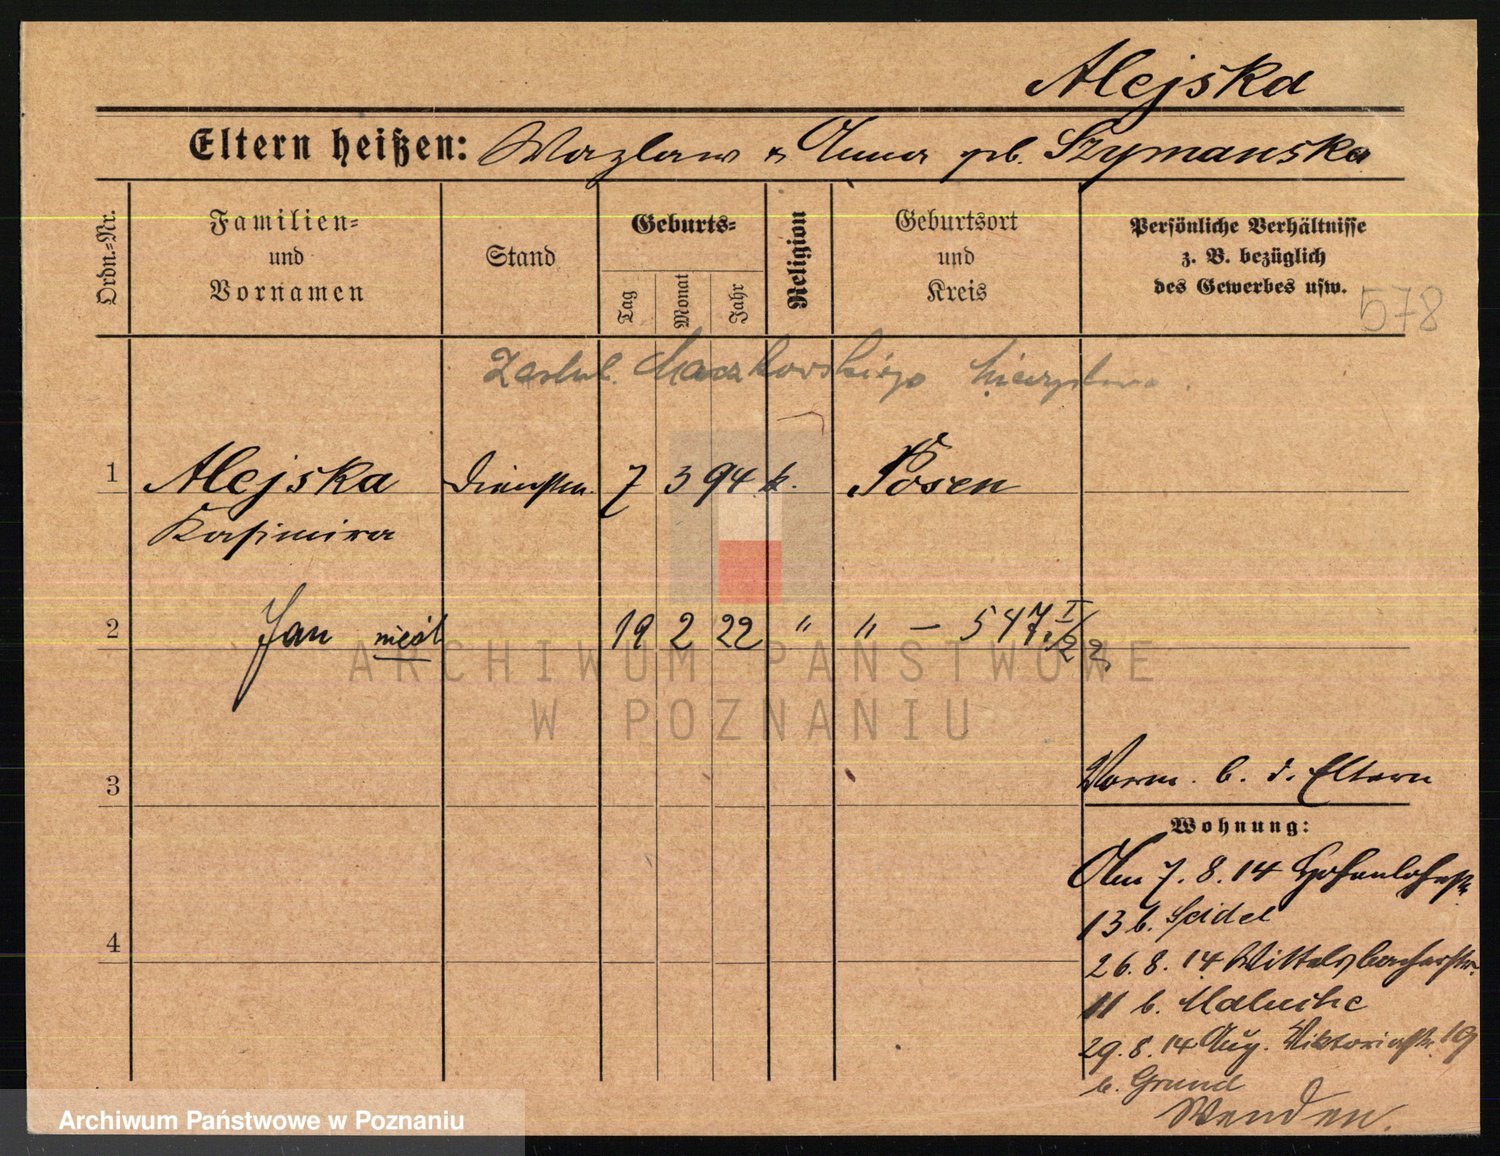 Alejska
Eltern heißen: Wazlaw u Anna gb. Szymanska
Ordn.-Nr.
Familien-
und
Vornamen
Stand
Geburts-
Tag
Monat
Jahr
Religion
Geburtsort
und
Kreis
Persönliche Verhältnisse
z. B. bezüglich
des Gewerbes usw.
578
Maczkowskiego
1 Alejska Dienstm. 7 3 94 k. Posen
Kasimira
2 Jan nieśl 19 2 22 " " — 547 I/22
ARCHIWUM PAŃSTWOWE
W POZNANIU
3
Vorm. b. d. Eltern
Wohnung:
Am 7. 8. 14 Hohenlohestr.
13 b. Seidel
4
26. 8. 14 Wittelsbacherstr.
11 b. Maluche
29. 8. 14 Aug. Viktoriastr. 19
b. Grund
Wenden.
Archiwum Państwowe w Poznaniu